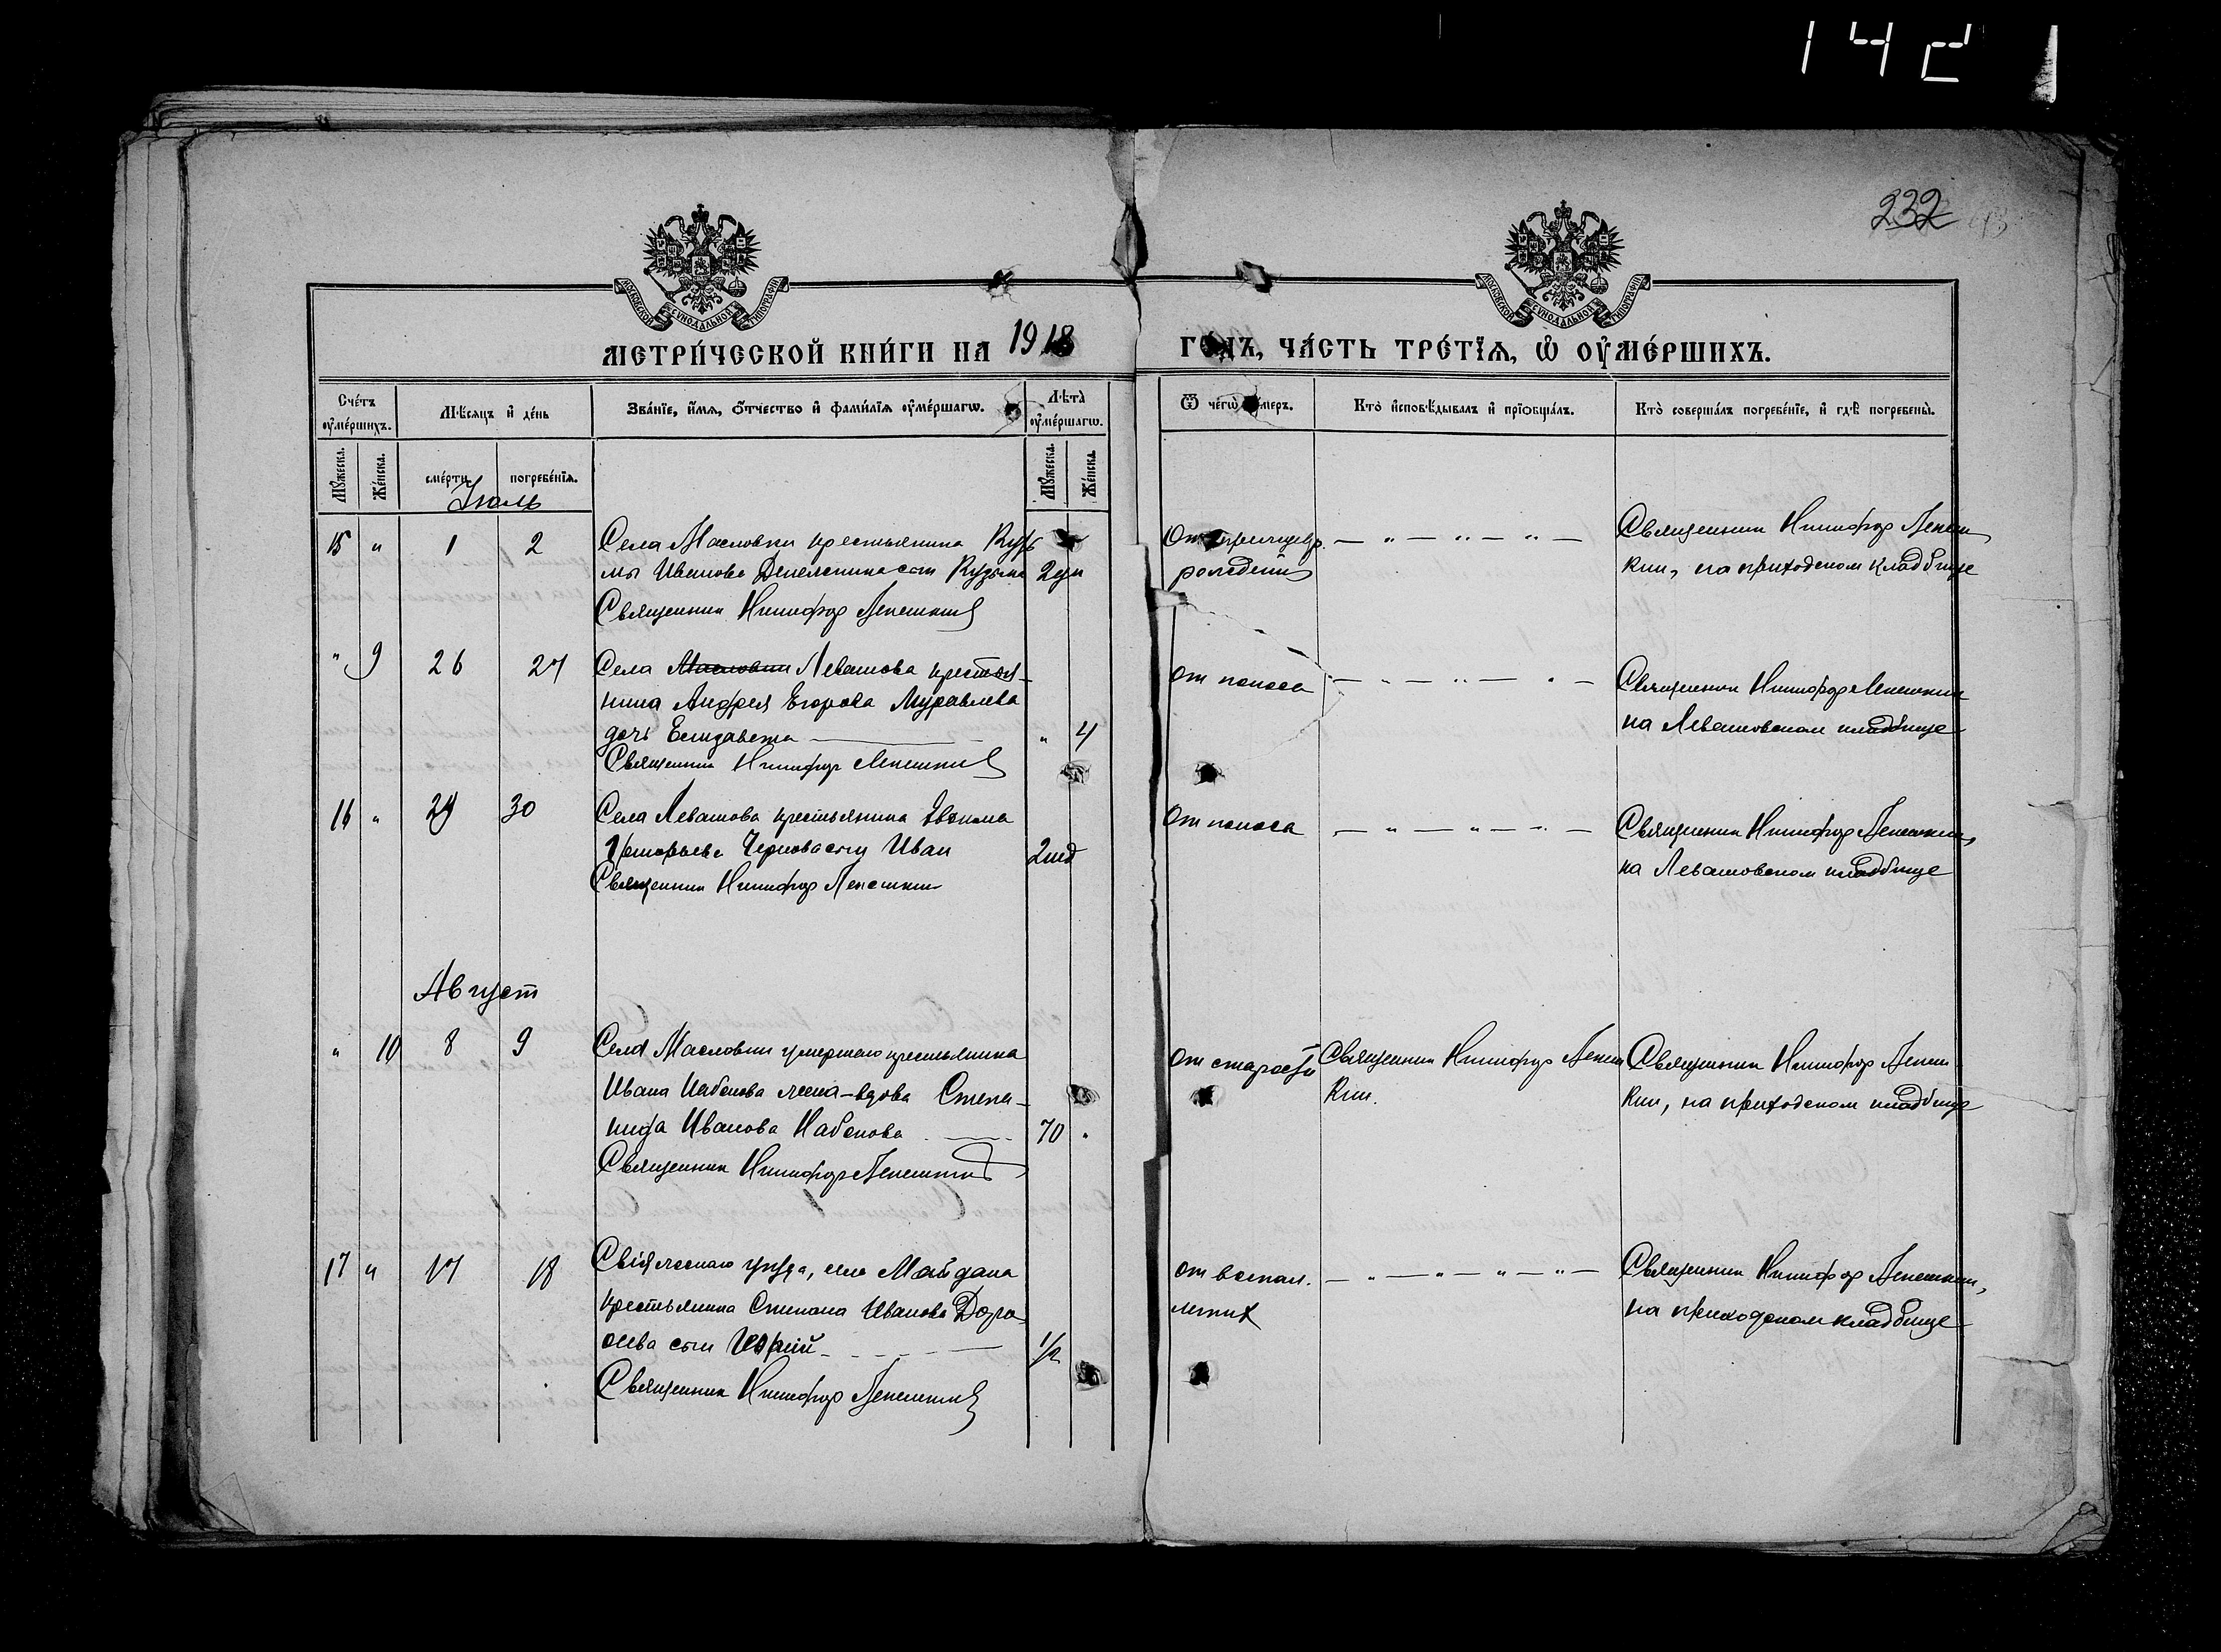 142
232
МОСКОВСКОЙ СѴНОДАЛЬНОЙ ТИПОГРАФІИ
МОСКОВСКОЙ СѴНОДАЛЬНОЙ ТИПОГРАФІИ
МЕТРИ́ЧЕСКОЙ КНИ́ГИ НА 1918
ГО́ДЪ, ЧА́СТЬ ТРЕ́ТІѦ, Ѡ҆ ОУ҆МЕ́РШИХЪ.
Сче́тъ оу҆ме́ршихъ.
Мѣ́сяцъ и҆ де́нь
Зва́нїе, и҆́мѧ, ѻ҆́тчество и҆ фами́лїѧ оу҆ме́ршагѡ.
Лѣ́та̀ оу҆ме́ршагѡ.
Ѿ чегѡ̀ оу҆́меръ.
Кто̀ и҆сповѣ́дывалъ и҆ прїобща́лъ.
Кто̀ соверша́лъ погребе́нїе, и҆ гдѣ̀ погребены̀.
Мꙋ́жеска.
Же́нска.
сме́рти
погребе́нїѧ.
Мꙋ́жеска.
Же́нска.
Июль
15 " 1 2 Села Масловки крестьянина Кузь
мы Иванова сын Кузьма 2 дн
Священник Никифор Лепешкин
От преждевр.
рождения
Священник Никифор Лепеш
кин, на приходском кладбище
" 9 26 27 Села Масловки Левашова крестья-
нина Андрея Егорова Муравлева
дочь Елизавета " 4
Священник Никифор Лепешкин
от поноса
Священник Никифор Лепешкин
на Левашовском кладбище
16 " 29 30 Села Левашова крестьянина Евдокима
Григорьева Чернова сын Иван 2 нед
Священник Никифор Лепешкин
От поноса
Священник Никифор Лепешкин,
на Левашовском кладбище
Август
" 10 8 9 Села Масловки умершаго крестьянина
Ивана Набокова жена-вдова Степа-
нида Иванова Набокова 70 "
Священник Никифор Лепешкин
от старости
Священник Никифор Лепеш
кин.
Священник Никифор Лепеш
кин, на приходском кладбище
17 " 17 18 Свияжскаго уезда, села Майдана
крестьянина Степана Иванова
сын 1/2
Священник Никифор Лепешкин
от воспал.
легких
Священник Никифор Лепешкин,
на приходском кладбище